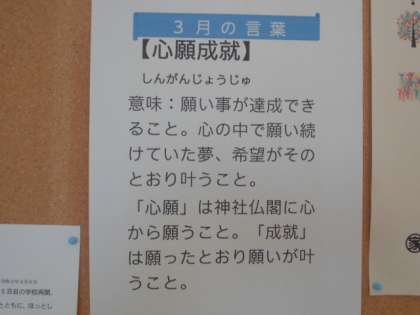 ３月の言葉
【心願成就】
しんがんじょうじゅ
意味：願い事が達成でき
ること。心の中で願い続
けていた夢、希望がその
とおり叶うこと。
「心願」は神社仏閣に心
から願うこと。「成就」
は願ったとおり願いが叶
うこと。
日目の学校再開。
たとともに、ほっとし